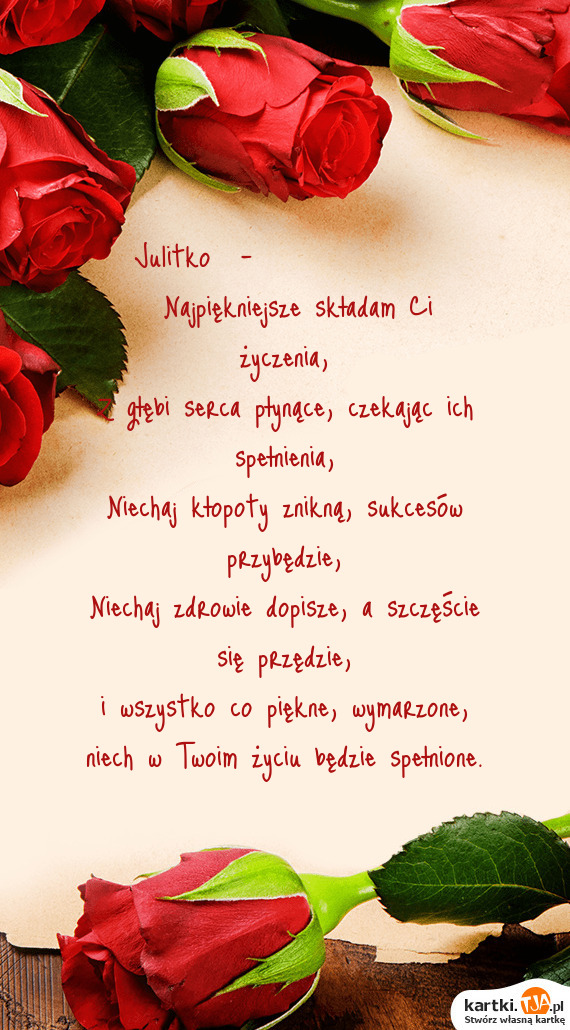 Julitko -
Najpiękniejsze składam Ci
życzenia,
Z głębi serca płynące, czekając ich
spełnienia,
Niechaj kłopoty znikną, sukcesów
przybędzie,
Niechaj zdrowie dopisze, a szczęście
się przędzie,
i wszystko co piękne, wymarzone,
niech w Twoim życiu będzie spełnione.
kartki.TJA.pl
Stwórz własną kartkę